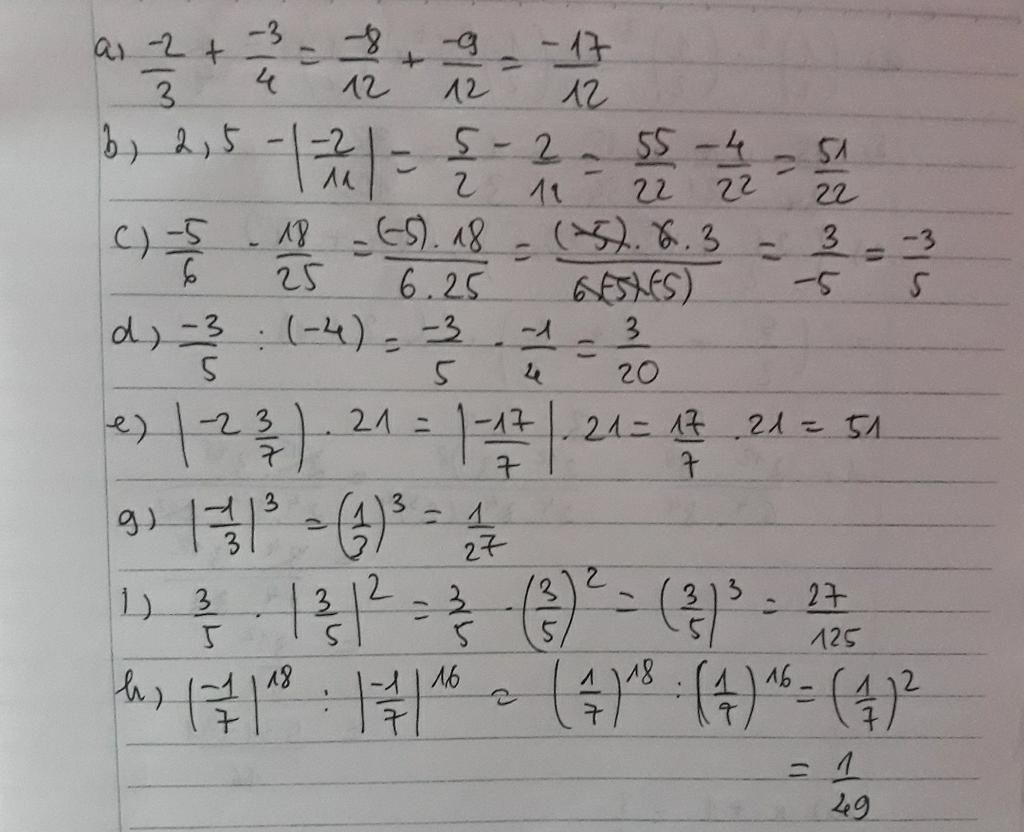 a, -2/3 + -3/4 = -8/12 + -9/12 = -17/12
b, 2,5 - |-2/11| = 5/2 - 2/11 = 55/22 - 4/22 = 51/22
c) -5/6 . 18/25 = (-5).18/6.25 = (-5).6.3/6.(-5).(-5) = 3/-5 = -3/5
d, -3/5 : (-4) = -3/5 . -1/4 = 3/20
e) |-2 3/7| . 21 = |-17/7| . 21 = 17/7 . 21 = 51
g) |-1/3|^3 = (1/3)^3 = 1/27
i) 3/5 . |3/5|^2 = 3/5 . (3/5)^2 = (3/5)^3 = 27/125
h, |-1/7|^18 : |-1/7|^16 = (1/7)^18 : (1/7)^16 = (1/7)^2
= 1/49